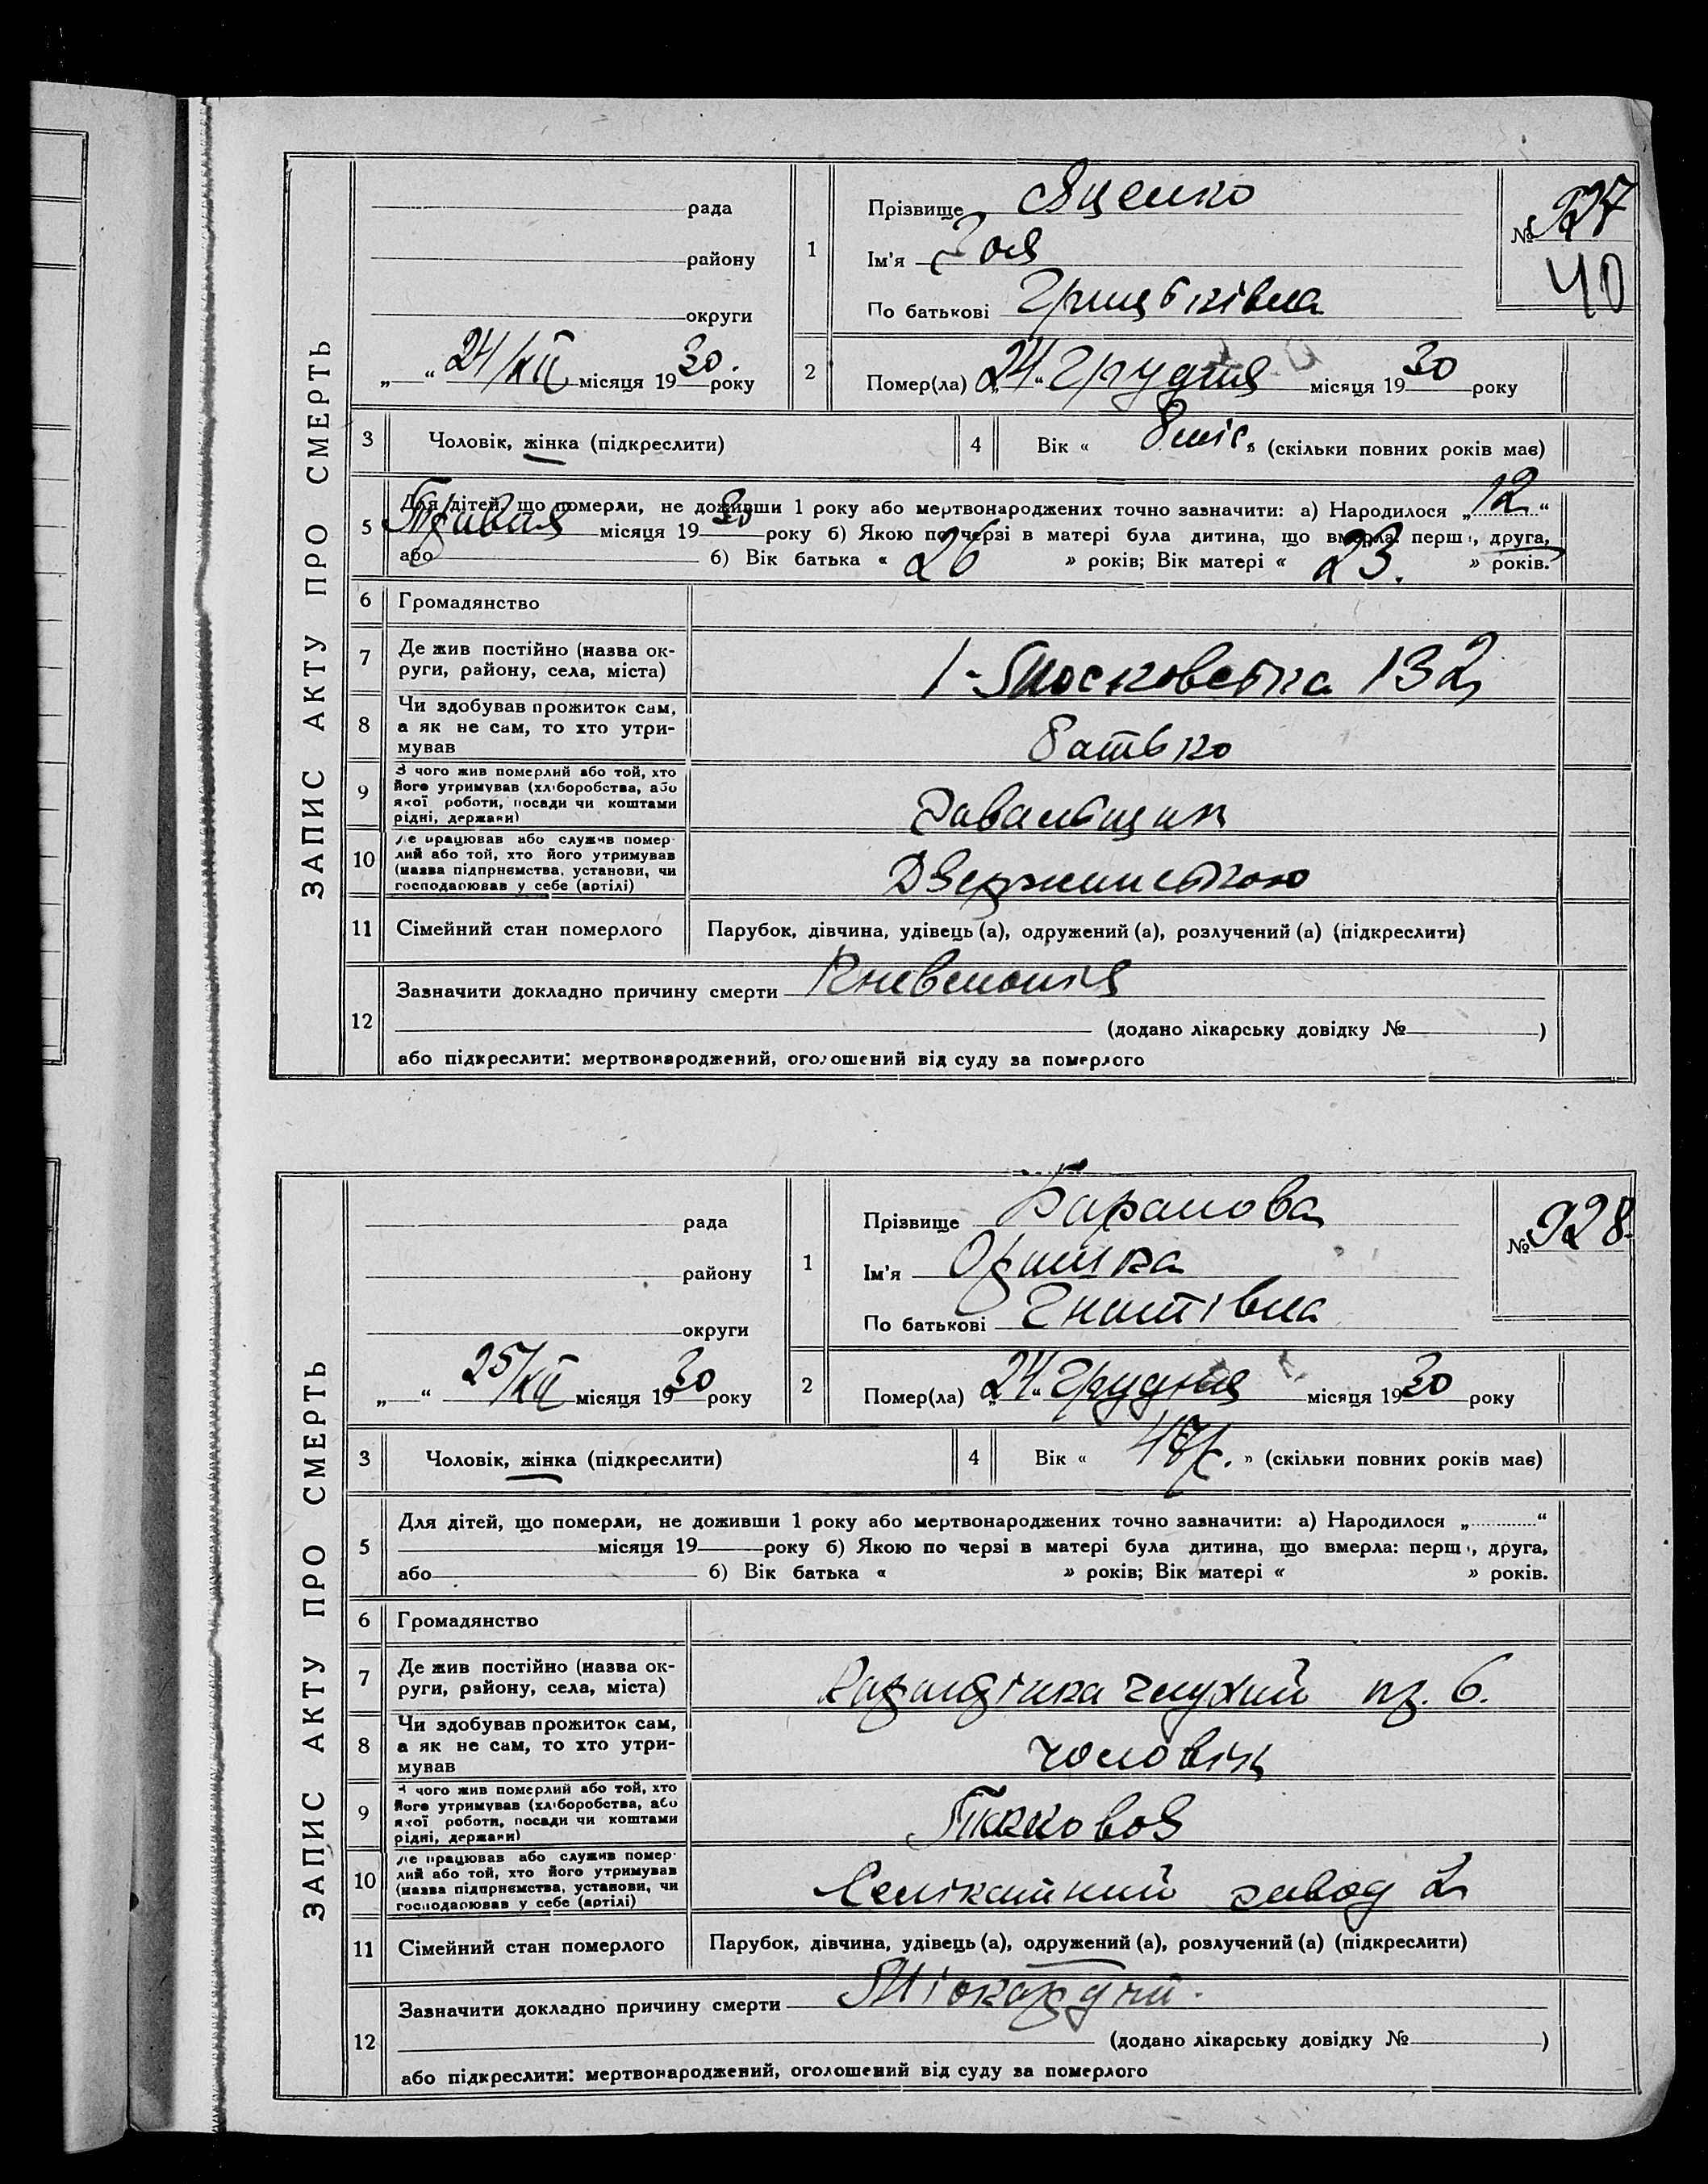 ЗАПИС АКТУ ПРО СМЕРТЬ
рада
району
округи
„ “ 24/XII місяця 1930. року
1
Прізвище Яценко
Ім'я Зоя
По батькові Грицьківна
№ 927
40
2
Помер(ла) „24“ Грудня місяця 1930 року
3 Чоловік, жінка (підкреслити)
4 Вік « 8 міс. » (скільки повних років має)
5 Для дітей, що померли, не доживши 1 року або мертвонароджених точно зазначити: а) Народилося „12“
Травня місяця 1930 року б) Якою по черзі в матері була дитина, що вмерла: перша, друга,
або 6) Вік батька « 26 » років; Вік матері « 23. » років.
6 Громадянство
7 Де жив постійно (назва ок-
руги, району, села, міста)
1-Московська 132
8 Чи здобував прожиток сам,
а як не сам, то хто утри-
мував
батько
9 З чого жив померлий або той, хто
його утримував (хліборобства, або
якої роботи, посади чи коштами
рідні, держави)
Завальщик
10 Де працював або служив помер-
лий або той, хто його утримував
(назва підприємства, установи, чи
господарював у себе (артілі)
Дзержинською
11 Сімейний стан померлого Парубок, дівчина, удівець (а), одружений (а), розлучений (а) (підкреслити)
12 Зазначити докладно причину смерти Пневмонія
(додано лікарську довідку № )
або підкреслити: мертвонароджений, оголошений від суду за померлого
ЗАПИС АКТУ ПРО СМЕРТЬ
рада
району
округи
„ “ 25/XII місяця 1930 року
1
Прізвище Баранова
Ім'я Оришка
По батькові Гнатівна
№ 928.
2
Помер(ла) „24“ Грудня місяця 1930 року
3 Чоловік, жінка (підкреслити)
4 Вік « » (скільки повних років має)
5 Для дітей, що померли, не доживши 1 року або мертвонароджених точно зазначити: а) Народилося „ “
місяця 19 року б) Якою по черзі в матері була дитина, що вмерла: перша, друга,
або 6) Вік батька « » років; Вік матері « » років.
6 Громадянство
7 Де жив постійно (назва ок-
руги, району, села, міста)
глухий пр. 6.
8 Чи здобував прожиток сам,
а як не сам, то хто утри-
мував
чоловік
9 З чого жив померлий або той, хто
його утримував (хліборобства, або
якої роботи, посади чи коштами
рідні, держави)
10 Де працював або служив помер-
лий або той, хто його утримував
(назва підприємства, установи, чи
господарював у себе (артілі)
Селікатний завод 2
11 Сімейний стан померлого Парубок, дівчина, удівець (а), одружений (а), розлучений (а) (підкреслити)
12 Зазначити докладно причину смерти
(додано лікарську довідку № )
або підкреслити: мертвонароджений, оголошений від суду за померлого